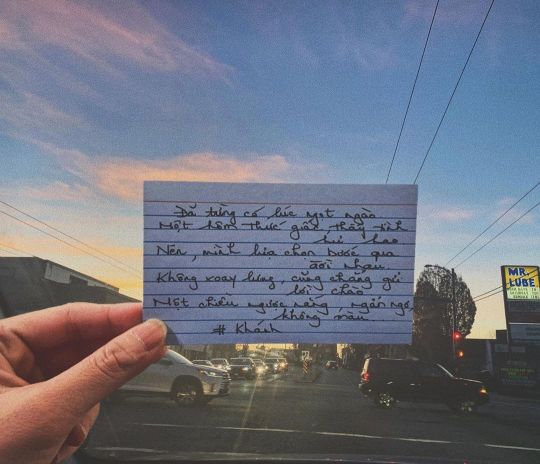 Đã từng có lúc ngọt ngào
Một hôm thức giấc thấy tình
hư hao
Nên, mình lựa chọn bước qua
đời nhau
Không xoay lưng, cũng chẳng gửi
lời chào
Một chiều ngược nắng ngẩn ngơ
không màu
# Khánh
MR.
LUBE